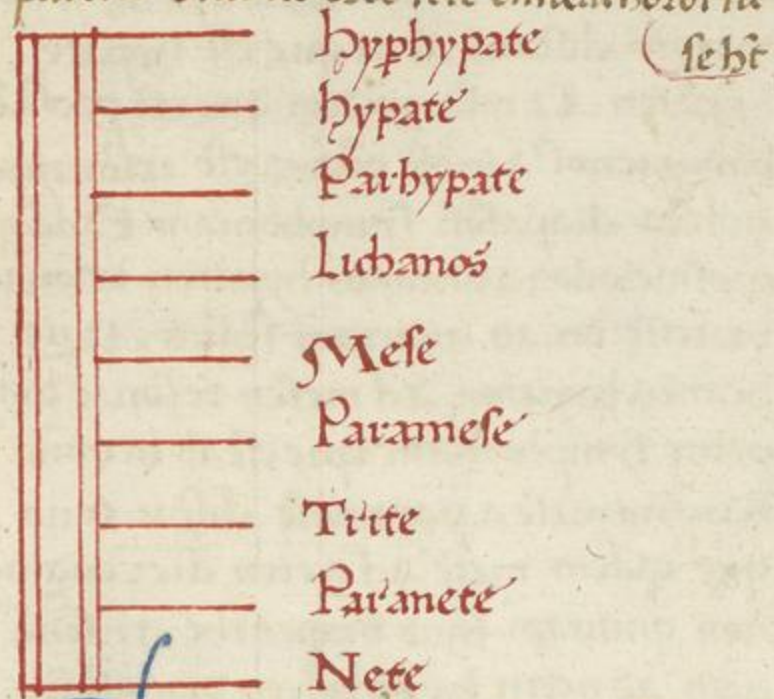 hyphypate
hypate
Parhypate
Lichanos
Mese
Paramese
Trite
Paranete
Nete